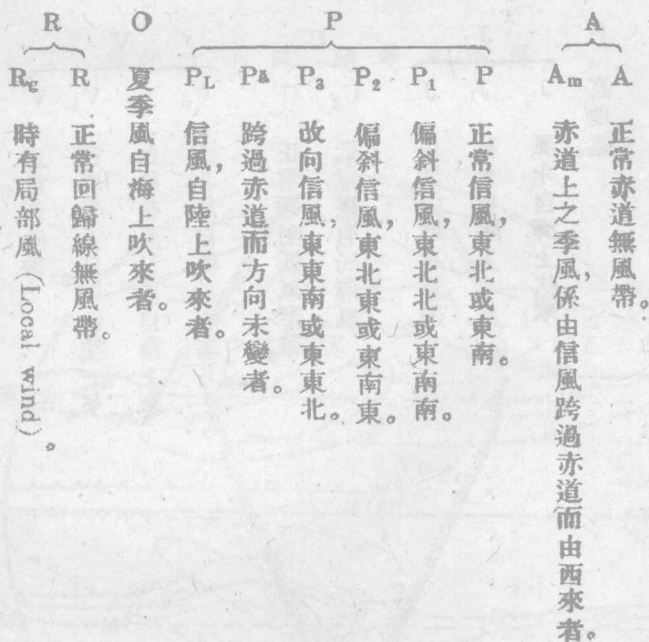 A
A 正常赤道無風帶。
Am 赤道上之季風，係由信風跨過赤道而由西來者。
P
P 正常信風，東北或東南。
P₁ 偏斜信風，東北北或東南南。
P₂ 偏斜信風，東北東或東南東。
P₃ 改向信風，東東南或東東北。
Pä 跨過赤道而方向未變者。
PL 信風，自陸上吹來者。
O
夏季風自海上吹來者。
R
R 正常回歸線無風帶。
Rg 時有局部風（Local wind）。